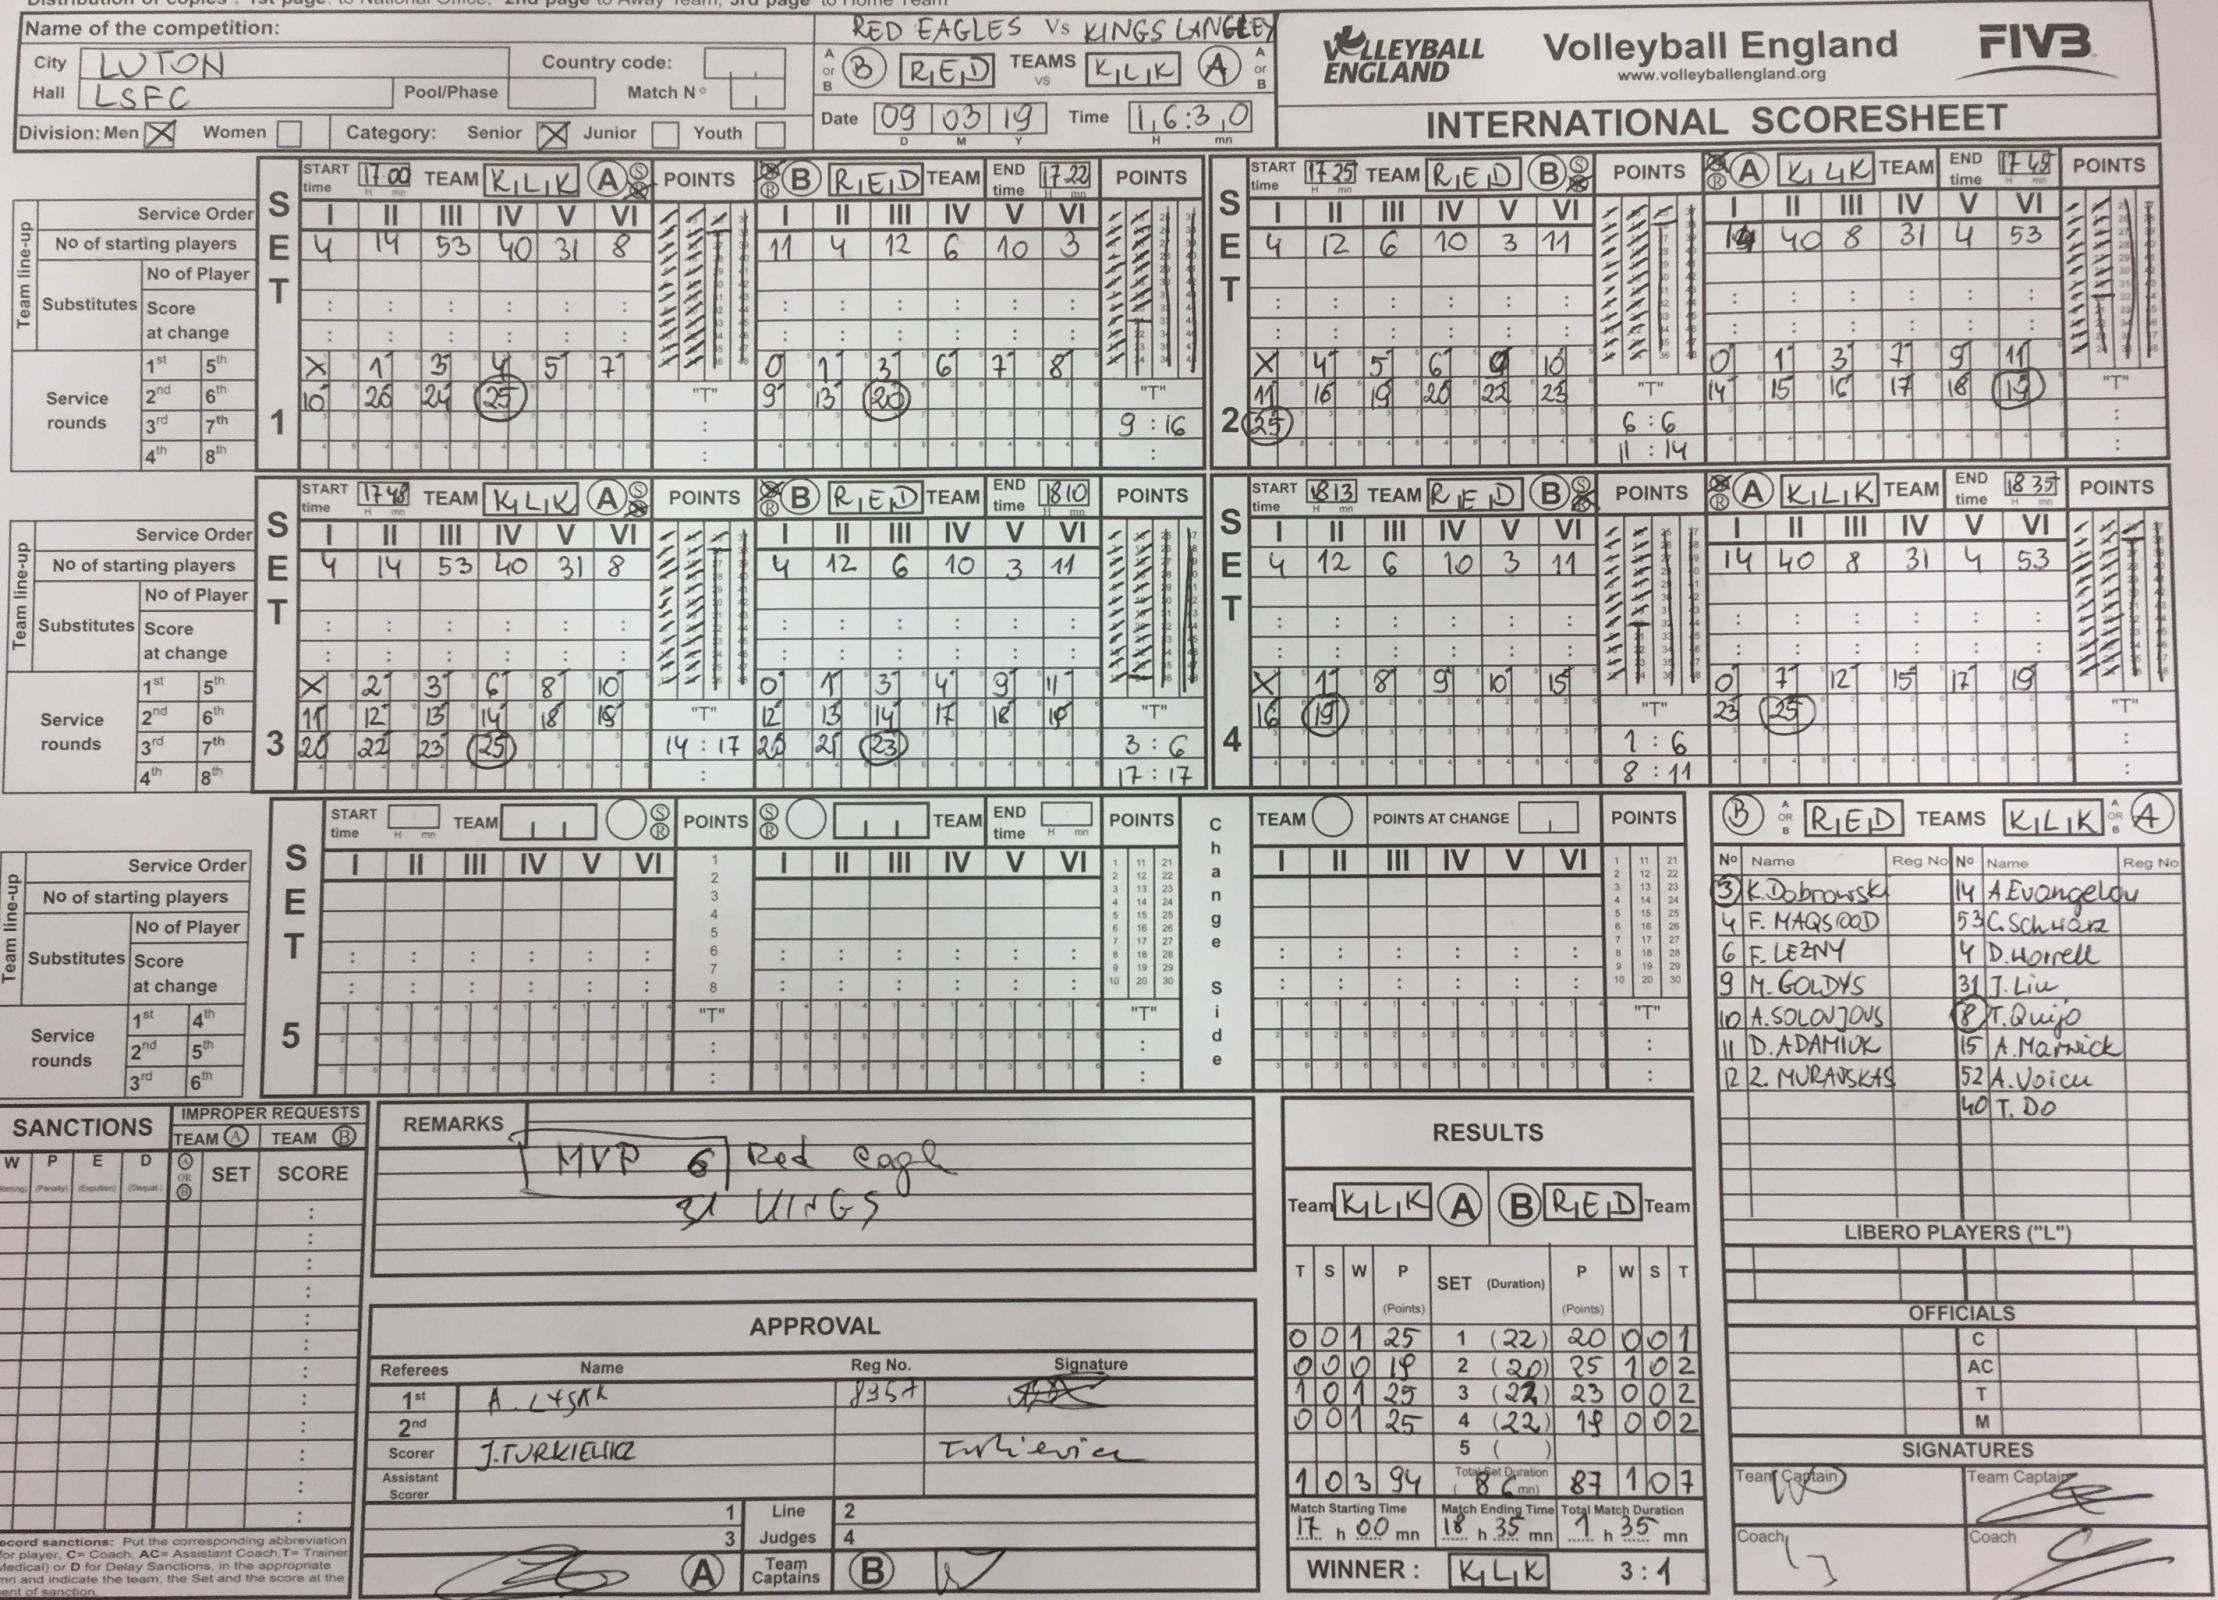 Distribution of copies : 1st page: to National Office, 2nd page to Away Team, 3rd page to Home Team
Name of the competition:
RED EAGLES Vs KINGS LANGLEY
City LUTON Country code:
Hall LSFC Pool/Phase Match Nº
Division: Men X Women Category: Senior X Junior Youth
A or B B RED TEAMS VS KLK A A or B
Date 09 03 19 Time 16:30
D M Y H mn
VOLLEYBALL ENGLAND
Volleyball England
www.volleyballengland.org
FIVB
INTERNATIONAL SCORESHEET
SET 1
START time 17 00 TEAM KLK A S R POINTS S R B RED TEAM END time 17 22 POINTS
Team line-up
Service Order I II III IV V VI I II III IV V VI
No of starting players 4 14 53 40 31 8 11 4 12 6 10 3
Substitutes No of Player
Score at change
Service rounds
1st 5th X 1 3 4 5 7 0 1 3 6 7 8 "T" "T"
2nd 6th 10 20 24 25 9 13 20
3rd 7th 9 : 16
4th 8th
SET 2
START time 17 25 TEAM RED B S R POINTS S R A KLK TEAM END time 17 45 POINTS
I II III IV V VI I II III IV V VI
4 12 6 10 3 11 14 40 8 31 4 53
X 4 5 6 9 10 0 1 3 7 9 11
11 16 19 20 22 23 "T" 14 15 16 17 18 19 "T"
25 6 : 6
11 : 14
SET 3
START time 17 48 TEAM KLK A S R POINTS S R B RED TEAM END time 18 10 POINTS
Team line-up
Service Order I II III IV V VI I II III IV V VI
No of starting players 4 14 53 40 31 8 4 12 6 10 3 11
Substitutes No of Player
Score at change
Service rounds
1st 5th X 2 3 6 8 10 0 1 3 4 9 11
2nd 6th 11 12 13 14 18 19 "T" 12 13 14 17 18 19 "T"
3rd 7th 20 22 23 25 14 : 17 20 21 23 3 : 6
4th 8th 17 : 17
SET 4
START time 18 13 TEAM RED B S R POINTS S R A KLK TEAM END time 18 35 POINTS
I II III IV V VI I II III IV V VI
4 12 6 10 3 11 14 40 8 31 4 53
X 1 8 9 10 15 0 7 12 15 17 19
16 19 "T" 23 25 "T"
1 : 6
8 : 11
SET 5
START time TEAM S R POINTS S R TEAM END time POINTS Change Side TEAM POINTS AT CHANGE POINTS
Team line-up
Service Order I II III IV V VI I II III IV V VI I II III IV V VI
No of starting players
Substitutes No of Player
Score at change
Service rounds
1st 4th "T" "T" "T"
2nd 5th
3rd 6th
B A OR B RED TEAMS KLK A OR B A
Nº Name Reg No Nº Name Reg No
3 K. Dobrowski 14 A Evangelou
4 F. MAQSOOD 53 C. Schwarz
6 F. LEZNY 4 D. Worrell
9 M. GOLDYS 31 J. Liu
10 A. SOLOVJOVS 8 T. Quijo
11 D. ADAMIUK 15 A. Marwick
12 Z. MURAVSKAS 52 A. Voicu
40 T. Do
LIBERO PLAYERS ("L")
OFFICIALS
C
AC
T
M
SIGNATURES
Team Captain Team Captain
Coach Coach
SANCTIONS IMPROPER REQUESTS
TEAM A TEAM B
W P E D A OR B SET SCORE
(Penalty) (Expultion) (Disqual.)
ecord sanctions: Put the corresponding abbreviation
for player, C= Coach, AC= Assistant Coach, T= Trainer
Medical) or D for Delay Sanctions, in the appropriate
mn and indicate the team, the Set and the score at the
ent of sanction.
REMARKS
MVP 6 Red eagle
31 KINGS
APPROVAL
Referees Name Reg No. Signature
1st A. LYSAK
2nd
Scorer J. TURKIEWICZ Turkiewicz
Assistant Scorer
1 Line 2
3 Judges 4
A Team Captains B
RESULTS
Team KLK A B RED Team
T S W P (Points) SET (Duration) P (Points) W S T
0 0 1 25 1 (22) 20 0 0 1
0 0 0 19 2 (20) 25 1 0 2
1 0 1 25 3 (22) 23 0 0 2
0 0 1 25 4 (22) 19 0 0 2
5 ( )
1 0 3 94 Total Set Duration ( 86 mn) 87 1 0 7
Match Starting Time Match Ending Time Total Match Duration
17 h 00 mn 18 h 35 mn 1 h 35 mn
WINNER : KLK 3 : 1